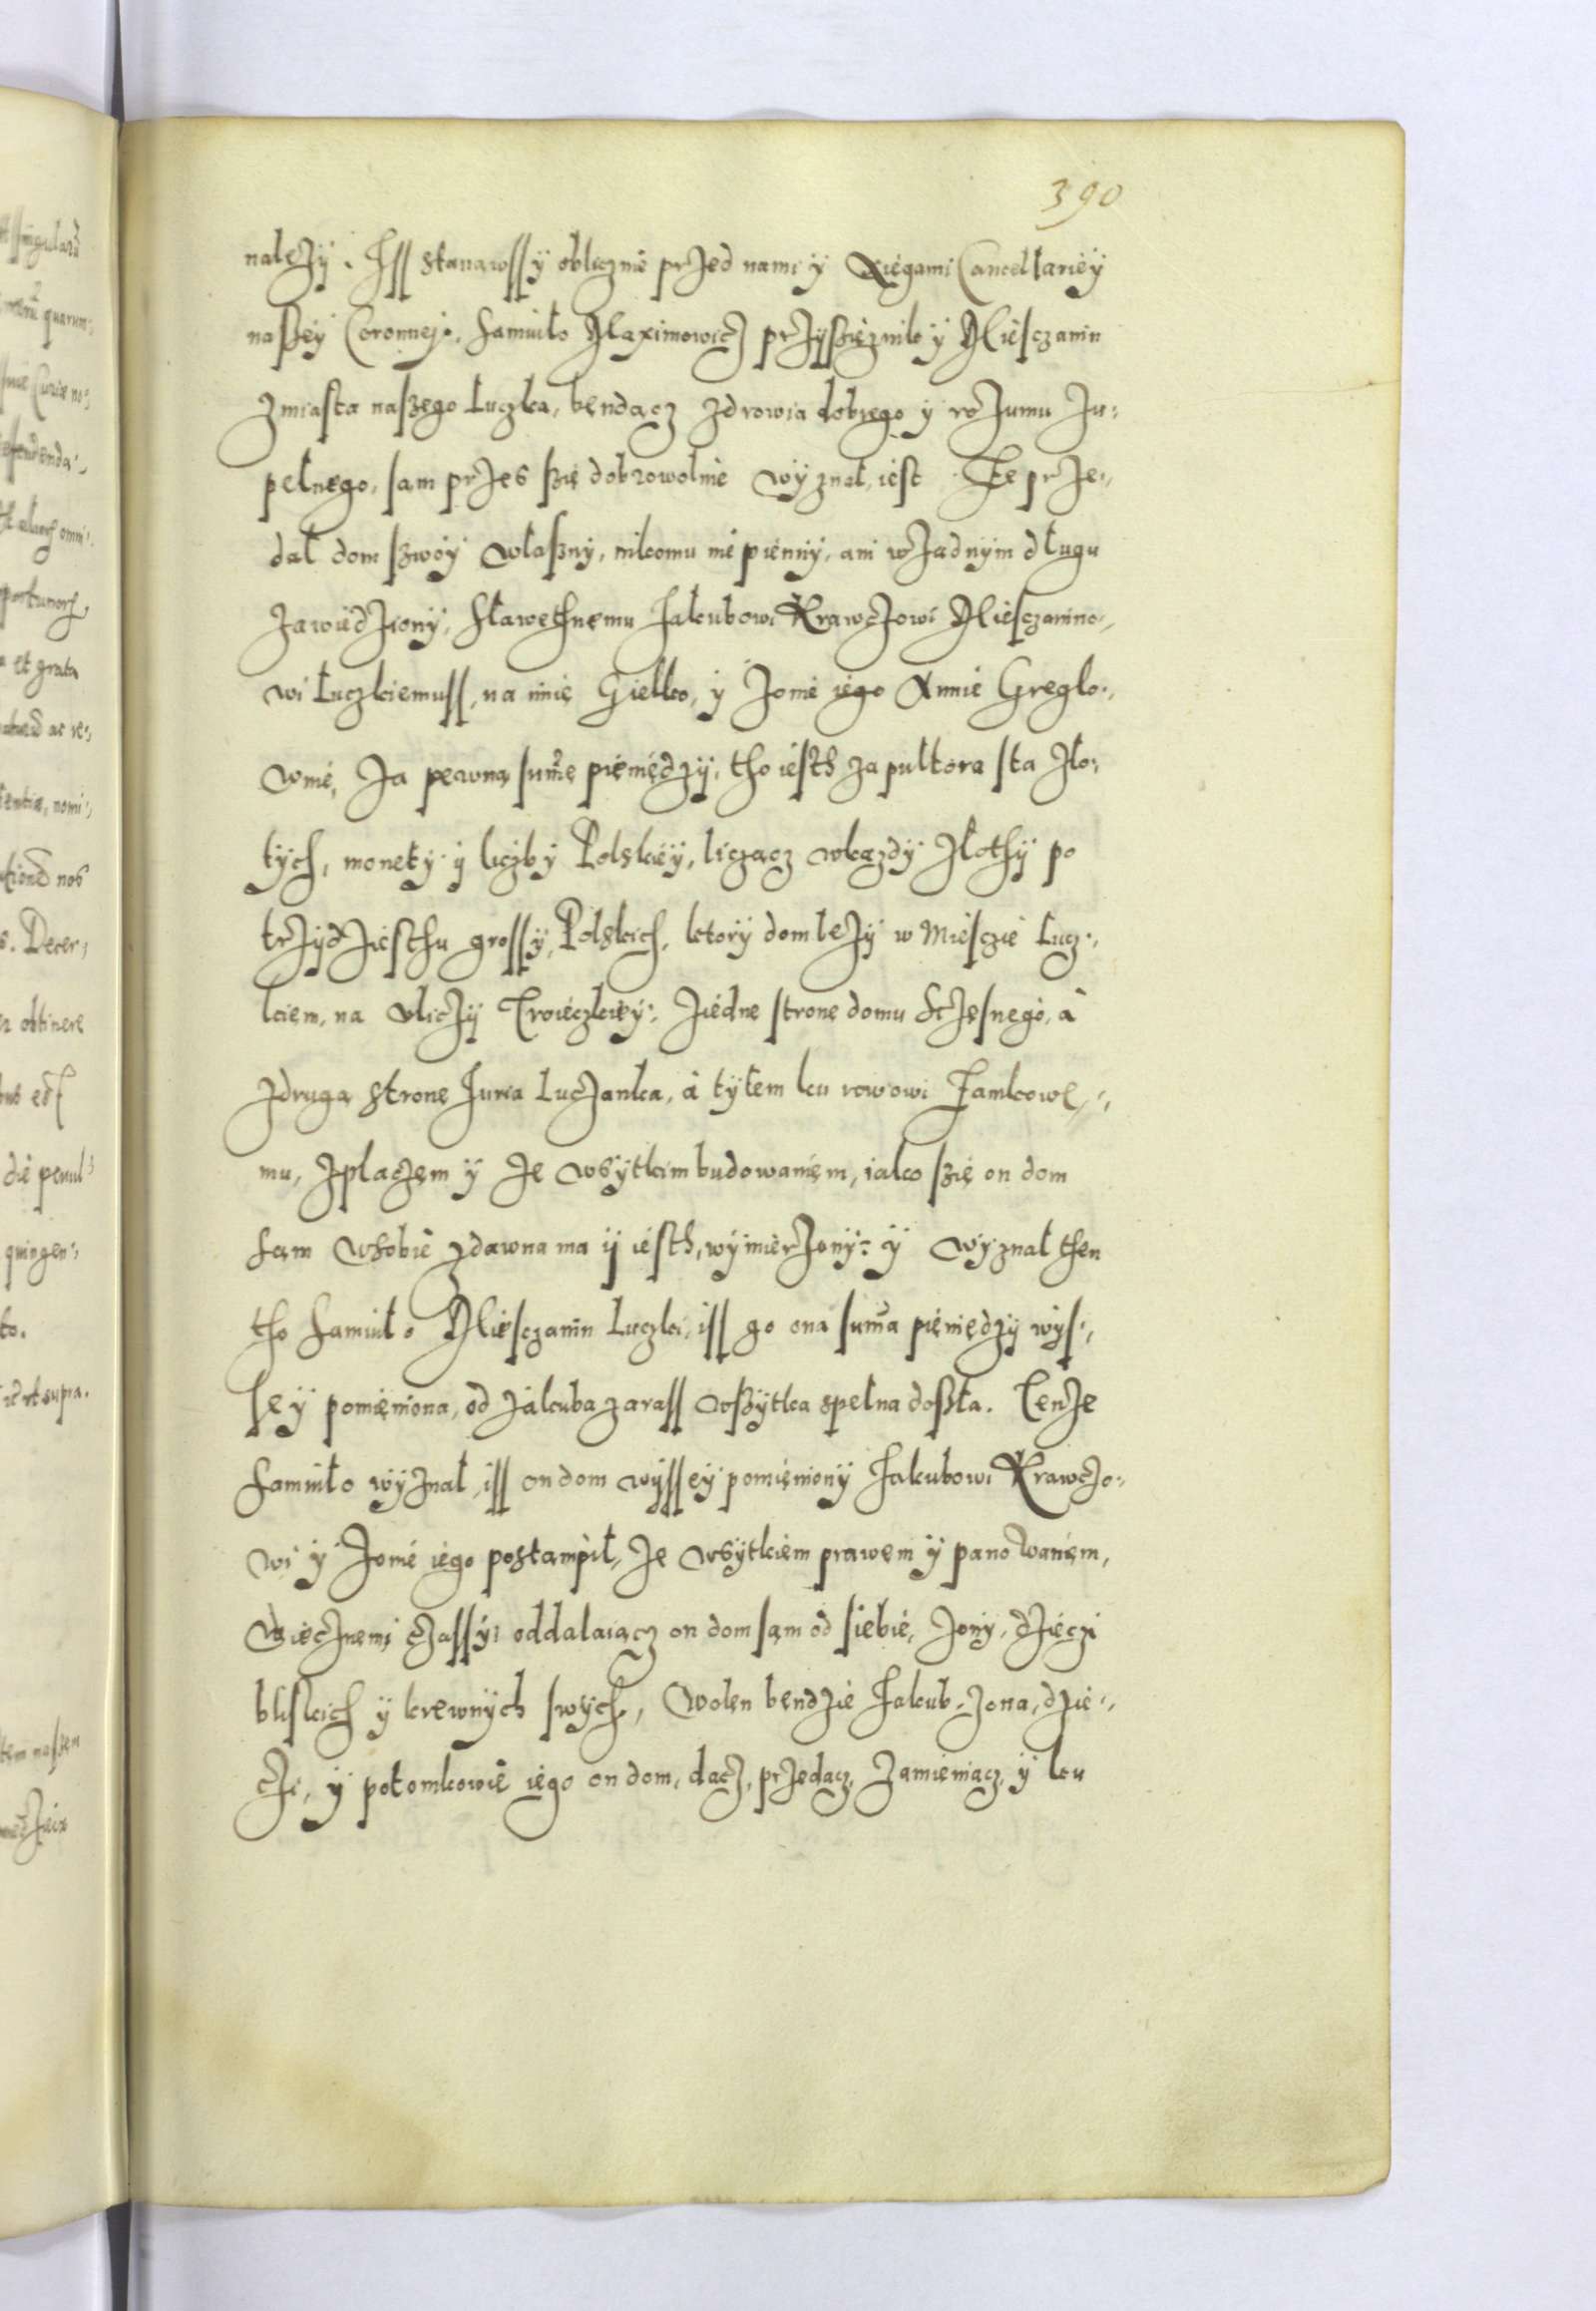 390
należy. Iss stanąwssy obliczniе przed nami y Xięgami Cancellariey
naßey Coronnej. Samuiło Maximowicz przyßięznik y Miesczanin
z miasta naßego Luczka, bendącz zdrowia dobrego y rozumu zu:
pełnego, sam przes ßię dobrowolnie wyznał iest. Że prze:,
dał dom ßwoy własny, nikomu nie pienny, ani w żadnym długu
zawiedziony, Sławethnemu Jakubowi Krawczowi Miesczanino:,
wi Łuczkiemuss, na imię Giełło, y żonie iego Annie Greglo:,
wnie, Za pewną summę pieniędzy, tho iesth za pułtora sta zło:
tych, monety y liczby Polskiey, licząc w każdy złothy po
trzydziesthu grossy Polskich, ktory dom leży w Miesczie Lucz:,
kiem, na vliczy Troieczkiey: z iedne stronę domu Sczęsnego, à
z drugą stronę Juria Luczanka, à tyłem ku rowowi Zamkowe:,
mu, z placzem y ze wsytkim budowaniem, iako ßię on dom
sam w sobie z dawna ma y iesth, wymierzony: y wyznał then
tho Samuiło Miesczanin Luczki, iss go ona summa pieniędzy wys:,
sey pomieniona, od Jakuba zarass wßytka spełna doßła. Tenże
Samuiło wyznał, iss on dom wyssey pomieniony Jakubowi Krawczo:
wi y żonie iego postąmpił, ze wsytkiem prawem y panowaniem,
wiecznemi czassy: oddalaiącz on dom sąm od siebie, żony, dzieczi
bliskich y krewnych swych, Wolen bendzie Jakub, żona, dzie:,
czi, y potomkowie iego on dom, dacz, przedacz, zamieniacz, y ku